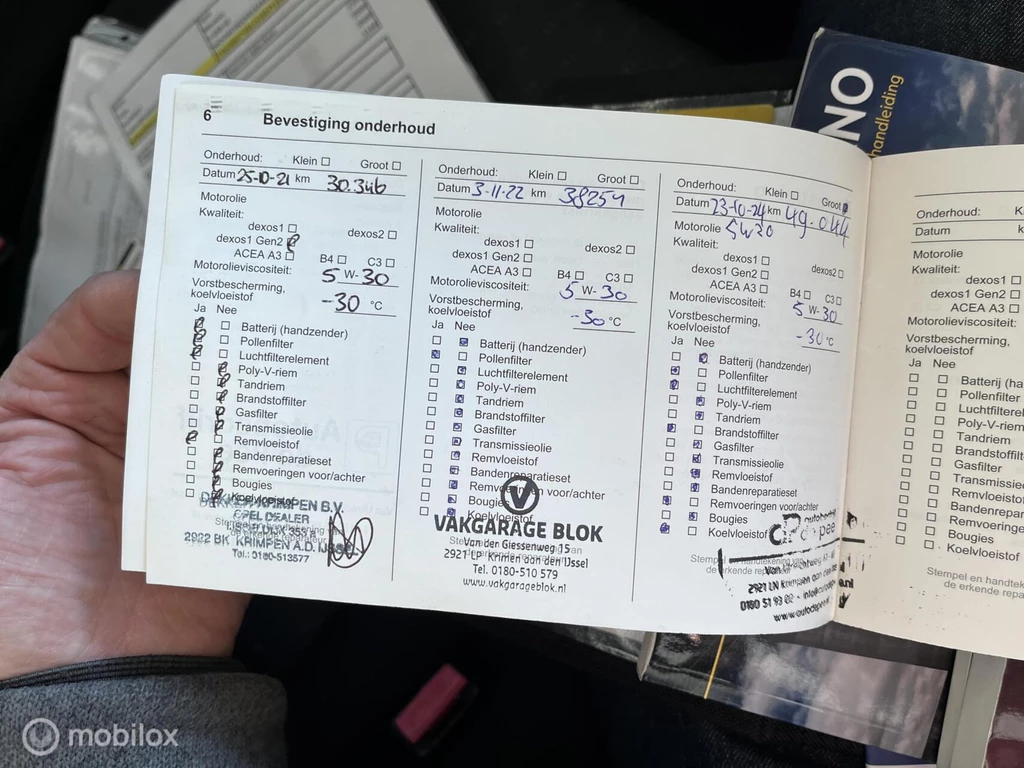 6 Bevestiging onderhoud
Onderhoud: Klein Groot
Datum 25-10-21 km 30.346
Motorolie
Kwaliteit:
dexos1 dexos2
dexos1 Gen2
ACEA A3 B4 C3
Motorolieviscositeit: 5 W-30
Vorstbescherming,
koelvloeistof -30 °C
Ja Nee
Batterij (handzender)
Pollenfilter
Luchtfilterelement
Poly-V-riem
Tandriem
Brandstoffilter
Gasfilter
Transmissieolie
Remvloeistof
Bandenreparatieset
Remvoeringen voor/achter
Bougies
Koelvloeistof
DEKKER KRIMPEN B.V.
OPEL DEALER
2922 BK KRIMPEN A.D. IJSSEL
Tel.: 0180-513577
Onderhoud: Klein Groot
Datum 3-11-22 km 38254
Motorolie
Kwaliteit:
dexos1 dexos2
dexos1 Gen2
ACEA A3 B4 C3
Motorolieviscositeit: 5 W-30
Vorstbescherming,
koelvloeistof -30 °C
Ja Nee
Batterij (handzender)
Pollenfilter
Luchtfilterelement
Poly-V-riem
Tandriem
Brandstoffilter
Gasfilter
Transmissieolie
Remvloeistof
Bandenreparatieset
Remvoeringen voor/achter
Bougies
Koelvloeistof
VAKGARAGE BLOK
Van der Giessenweg 15
2921 LP Krimpen aan den IJssel
Tel. 0180-510 579
www.vakgarageblok.nl
Onderhoud: Klein Groot
Datum 23-10-24 km 49.044
Motorolie 5W30
Kwaliteit:
dexos1 dexos2
dexos1 Gen2
ACEA A3 B4 C3
Motorolieviscositeit: 5 W-30
Vorstbescherming,
koelvloeistof -30 °C
Ja Nee
Batterij (handzender)
Pollenfilter
Luchtfilterelement
Poly-V-riem
Tandriem
Brandstoffilter
Gasfilter
Transmissieolie
Remvloeistof
Bandenreparatieset
Remvoeringen voor/achter
Bougies
Koelvloeistof
2921 LN Krimpen aan den
0180 51 93 02
Onderhoud: Klein
Datum
Motorolie
Kwaliteit:
dexos1
dexos1 Gen2
ACEA A3
Motorolieviscositeit:
Vorstbescherming,
koelvloeistof
Ja Nee
Batterij (han
Pollenfilter
Luchtfilterel
Poly-V-riem
Tandriem
Brandstoffi
Gasfilter
Transmiss
Remvloeis
Bandenrep
Remvoering
Bougies
Koelvloeist
Stempel en handtek
de erkende repara
NO
handleiding
mobilox